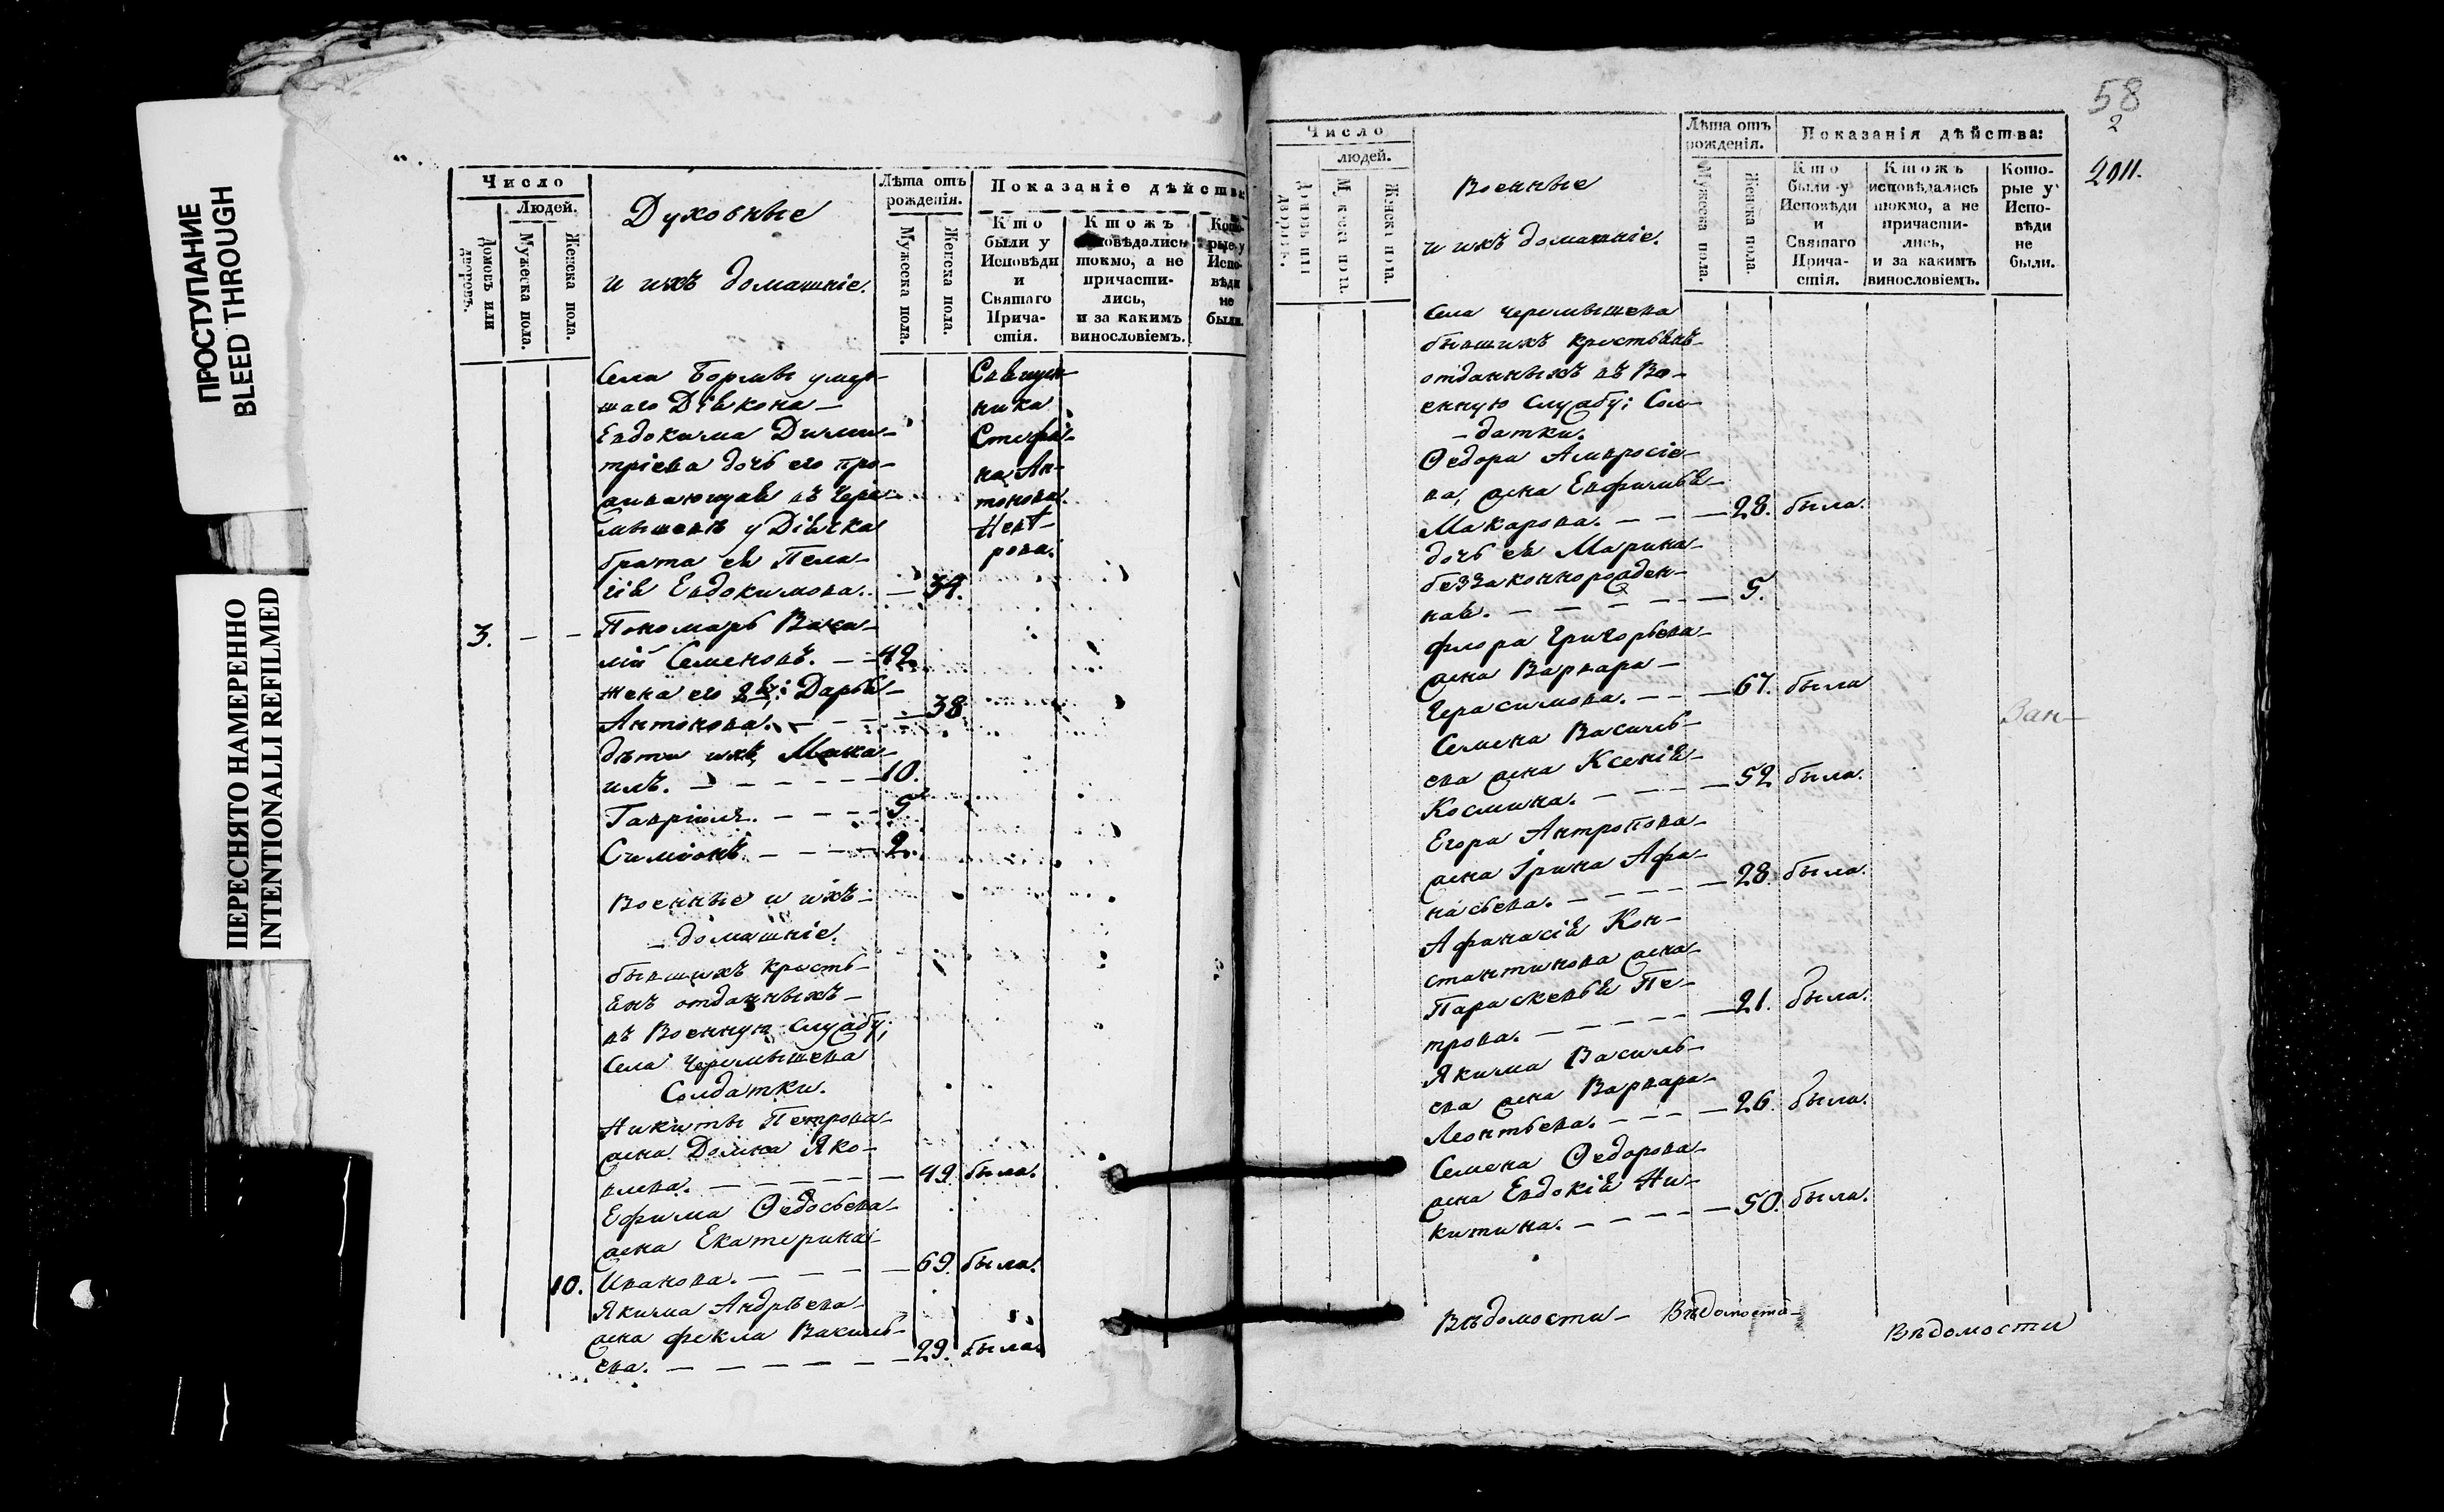 ПРОСТУПАНИЕ
BLEED THROUGH
ПЕРЕСНЯТО НАМЕРЕННО
INTENTIONALLI REFILMED
Число
Людей.
Домовъ или дворовъ.
Мужеска пола.
Женска пола.
Духовные
и ихъ домашніе.
Лѣта отъ рожденія.
Мужеска пола.
Женска пола.
Показаніе дѣйства:
Кто были у Исповѣди и Святаго Причастія.
Ктожъ исповѣдались токмо, а не причастились, и за какимъ винословіемъ.
Которые у Исповѣди не были.
Села Борлы умер-
шаго Діякона
Евдокима Дими-
тріева дочь его про-
живающая въ Чере-
мышевѣ у Дьячка
брата ея Пела-
гія Евдокимова. — 34.
Священ-
ника
Стефа-
на Ан-
тонова
3. — — Пономарь Васи-
лій Семеновъ. — 42.
жена его 2я: Дарья
Антонова. — 38
дѣти ихъ, Миха-
илъ. — 10.
Гавріилъ. — 5.
Симіонъ. — 2.
Военные и ихъ
домашніе.
бывшихъ кресть-
янъ отданныхъ
въ Военную службу;
Села Черемышева
Солдатки.
Никиты Петрова
жена Домна Яко-
влева. — 49. была.
Ефима Ѳедосѣева
жена Екатерина
10. Иванова. — 69. была.
Якима Андрѣева
жена Фекла Василь-
ева. — 29. была.
58
2
2011.
Число
людей.
Домовъ или дворовъ.
Мужеска пола.
Женска пола.
Военные
и ихъ домашніе.
Лѣта отъ рожденія.
Мужеска пола.
Женска пола.
Показанія дѣйства:
Кто были у Исповѣди и Святаго Причастія.
Ктожъ исповѣдались токмо, а не причастились, и за какимъ винословіемъ.
Которые у Исповѣди не были.
Села Черемышева
бывшихъ крестьянъ
отданныхъ въ Во-
енную службу; Сол-
датки.
Ѳедора Амвросіе-
ва, жена Евфимья
Макарова. — 28. была.
дочь ея Марина
беззаконнорожден-
ная. — 5.
Флора Григорьева
жена Варвара
Герасимова. — 67. была
Семена Василь-
ева жена Ксенія
Космина. — 52 была.
Егора Антропова
жена Ірина Афа-
насьева. — 28. была.
Афанасія Кон-
стантинова жена
Параскевья Пе-
трова. — 21. была.
Якима Василь-
ева жена Варвара
Леонтьева. — 26. была.
Семена Ѳедорова
жена Евдокія Ни-
китина. — 50. была.
Вѣдомости Вѣдомости Вѣдомости